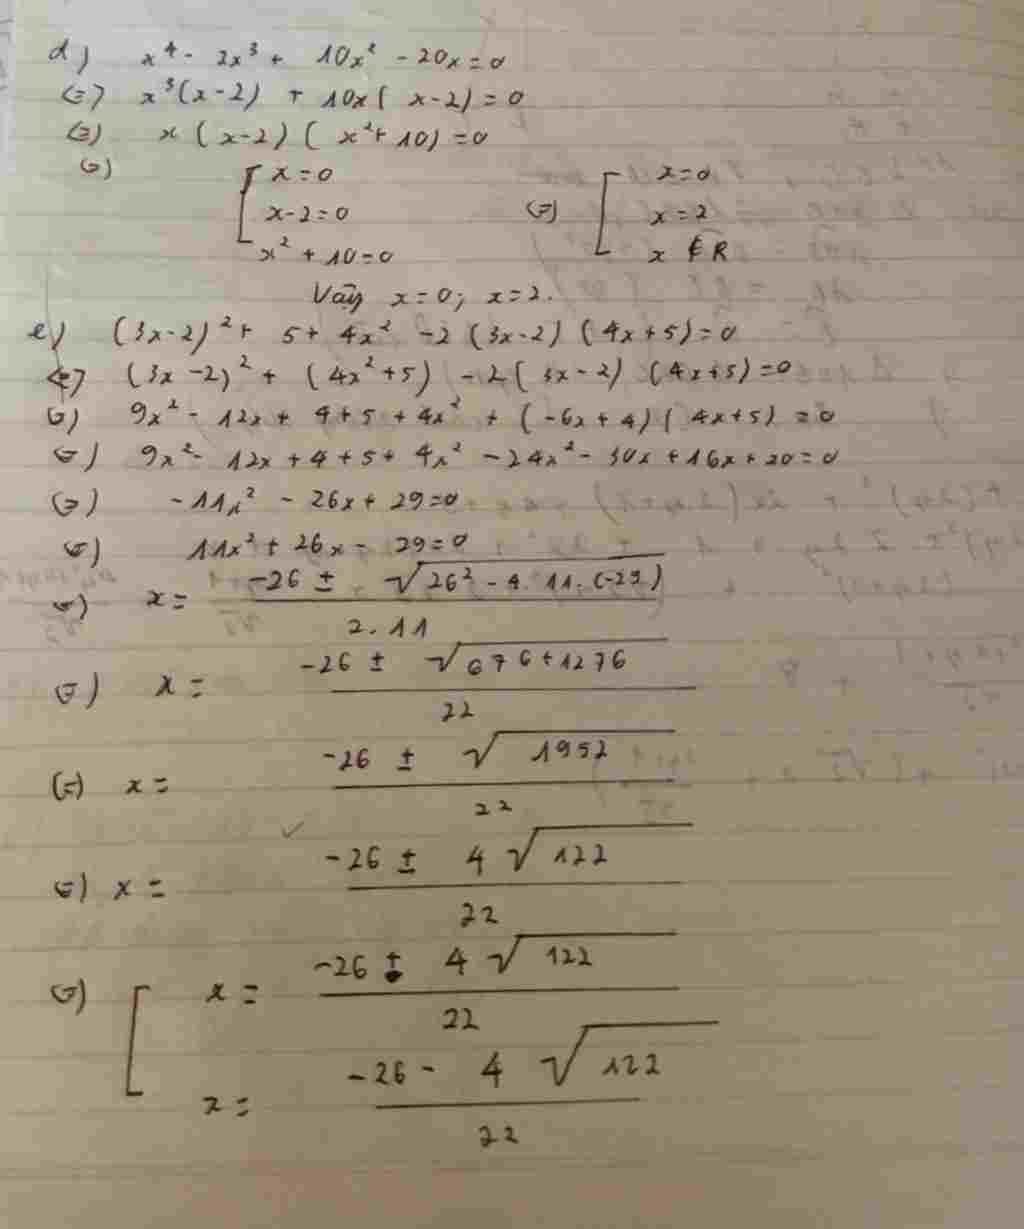 d) x⁴ - 2x³ + 10x² - 20x = 0
(=) x³(x-2) + 10x(x-2) = 0
(=) x(x-2)(x²+10) = 0
(=) [ x=0 (=) [ x=0
x-2=0 x=2
x²+10=0 x ∉ R
Vậy x=0; x=2.
e) (3x-2)² + 5 + 4x² - 2(3x-2)(4x+5) = 0
(=) (3x-2)² + (4x²+5) - 2(3x-2)(4x+5) = 0
(=) 9x² - 12x + 4 + 5 + 4x² + (-6x+4)(4x+5) = 0
(=) 9x² - 12x + 4 + 5 + 4x² - 24x² - 30x + 16x + 20 = 0
(=) -11x² - 26x + 29 = 0
(=) 11x² + 26x - 29 = 0
(=) x = (-26 ± √(26² - 4.11.(-29))) / 2.11
(=) x = (-26 ± √(676+1276)) / 22
(=) x = (-26 ± √1952) / 22
(=) x = (-26 ± 4√122) / 22
(=) [ x = (-26 ± 4√122) / 22
x = (-26 - 4√122) / 22